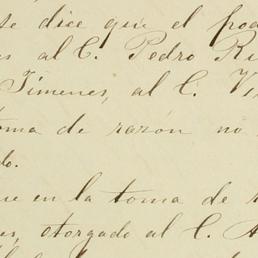 se dice que el pod
es al C. Pedro Ru
Jimenes, al C. Vi
toma de razón no
do.
ue en la toma de r
es, otorgado al C. A